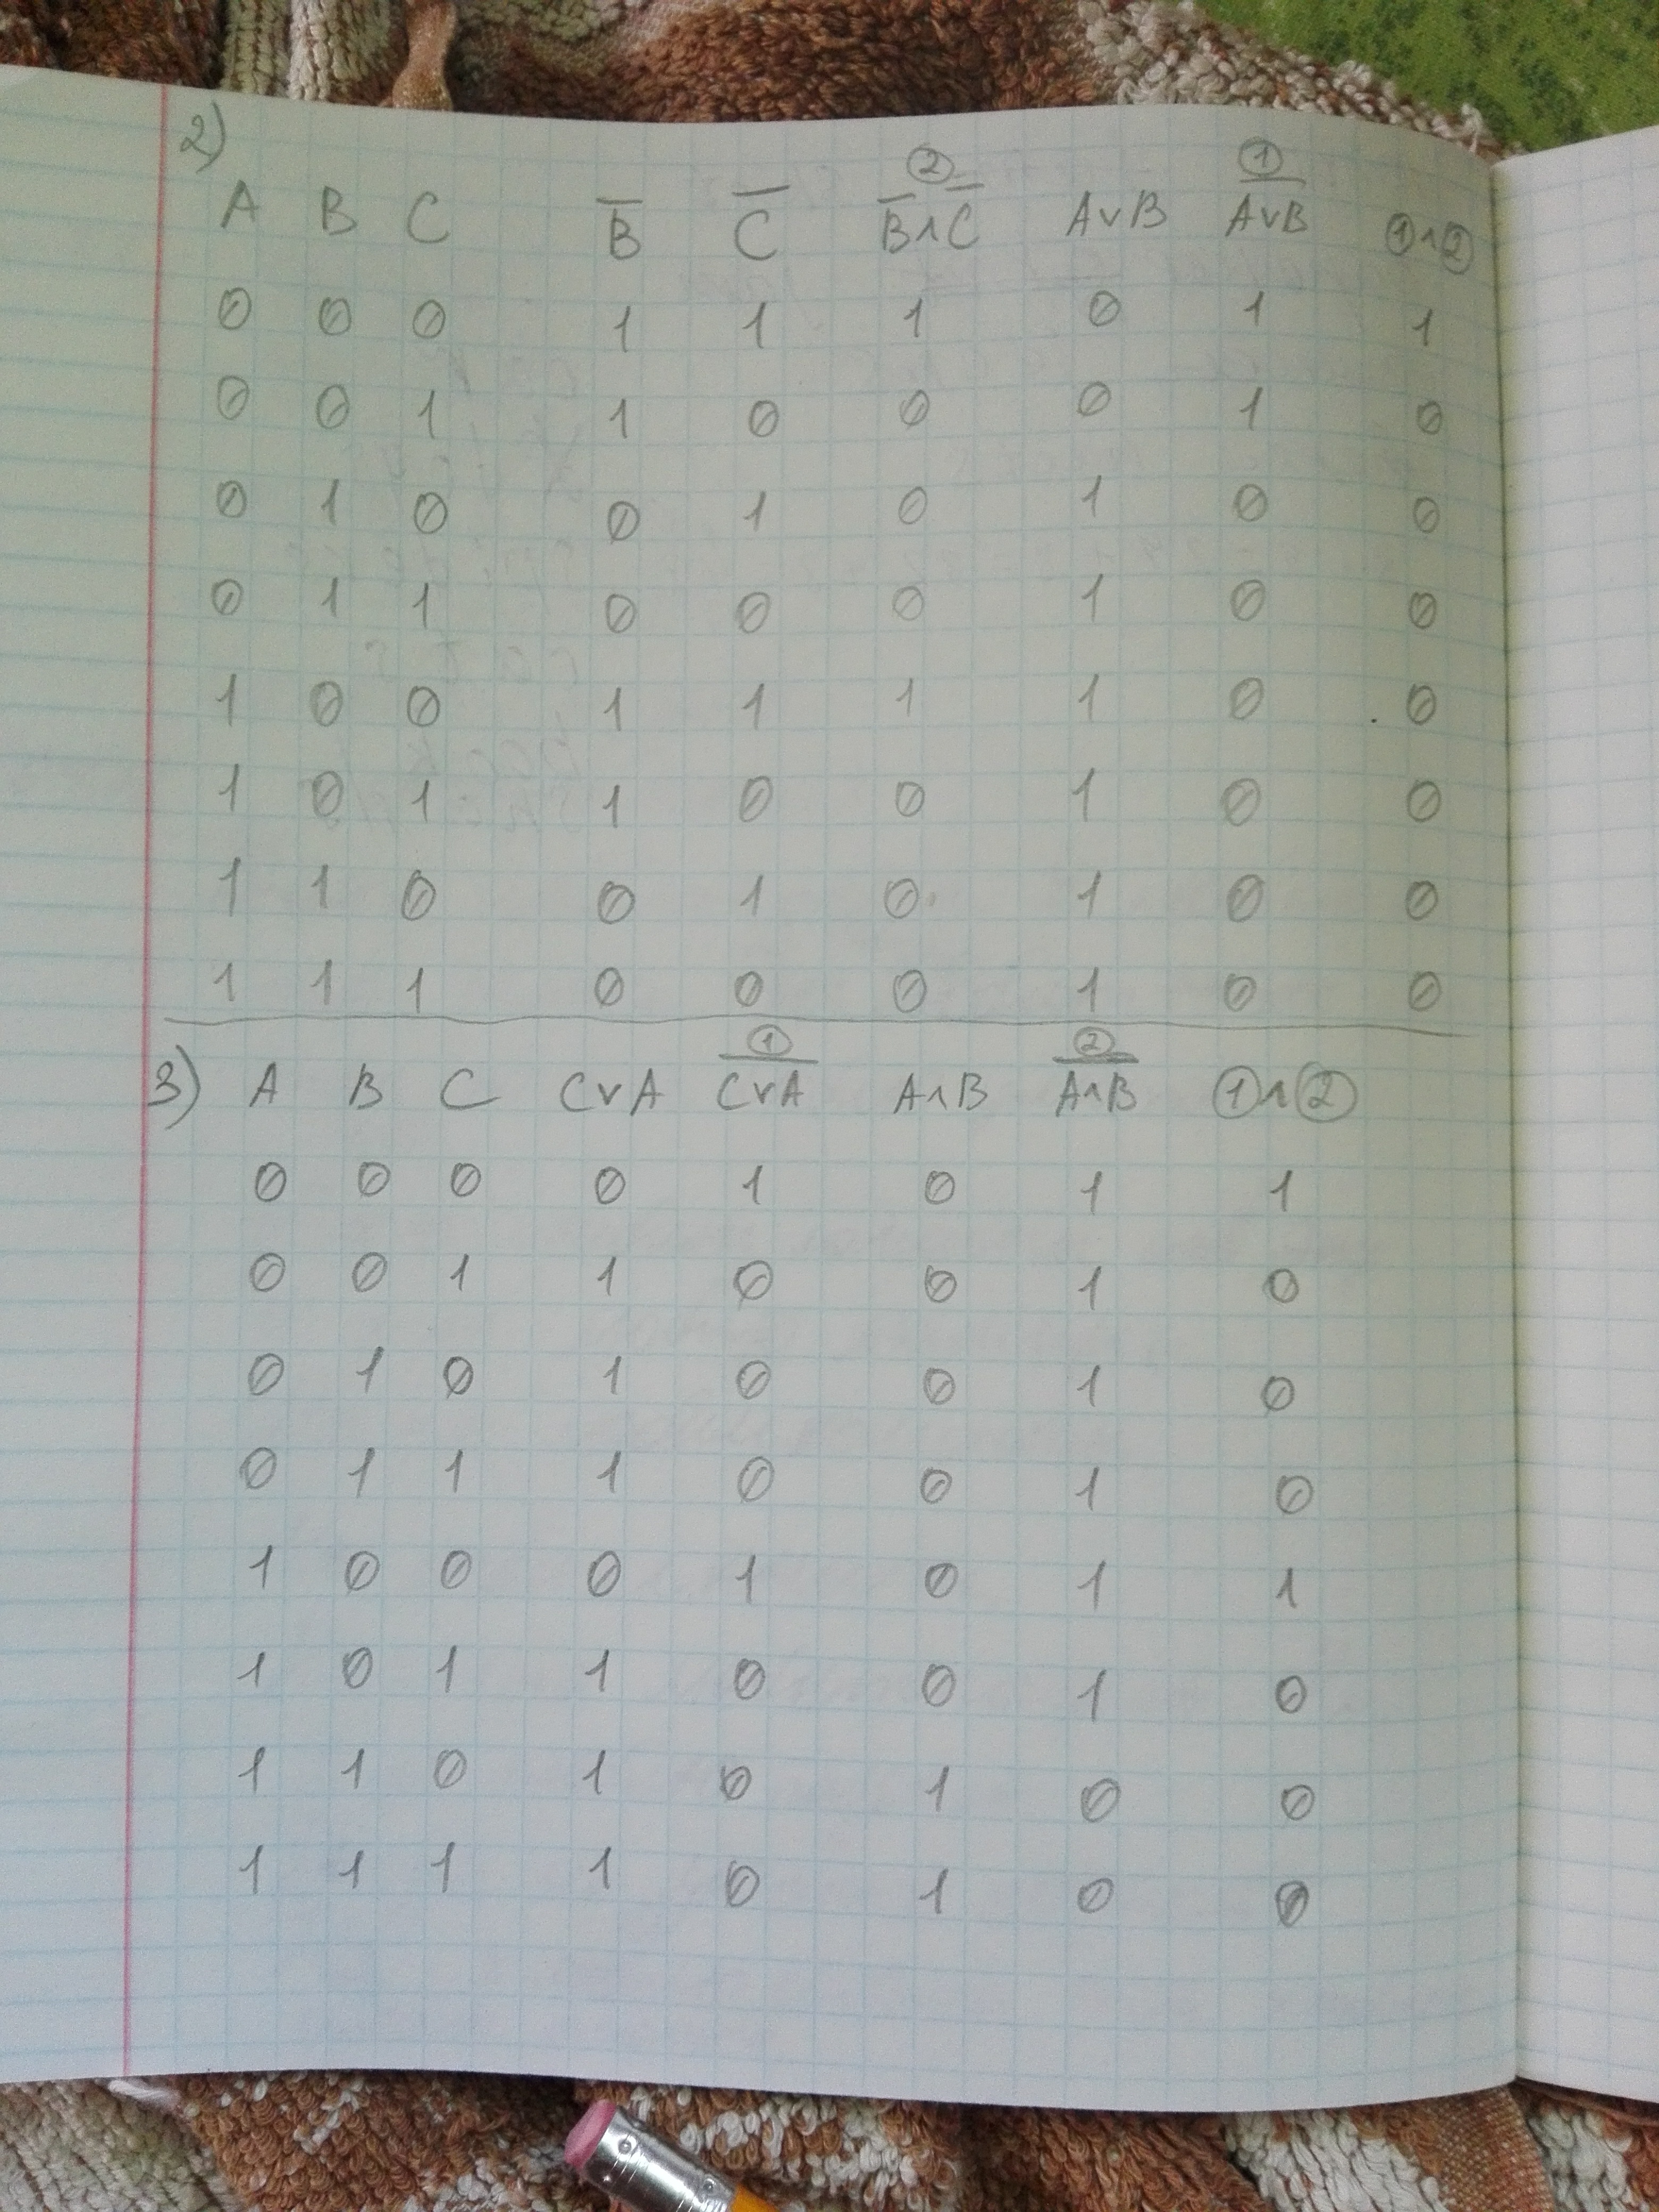 2)
A B C B̅ C̅ ② B̅∧C̅ A∨B ① A̅∨̅B̅ ①∧②
0 0 0 1 1 1 0 1 1
0 0 1 1 0 0 0 1 0
0 1 0 0 1 0 1 0 0
0 1 1 0 0 0 1 0 0
1 0 0 1 1 1 1 0 0
1 0 1 1 0 0 1 0 0
1 1 0 0 1 0 1 0 0
1 1 1 0 0 0 1 0 0
3) A B C C∨A ① C̅∨̅A̅ A∧B ② A̅∧̅B̅ ①∧②
0 0 0 0 1 0 1 1
0 0 1 1 0 0 1 0
0 1 0 1 0 0 1 0
0 1 1 1 0 0 1 0
1 0 0 0 1 0 1 1
1 0 1 1 0 0 1 0
1 1 0 1 0 1 0 0
1 1 1 1 0 1 0 0